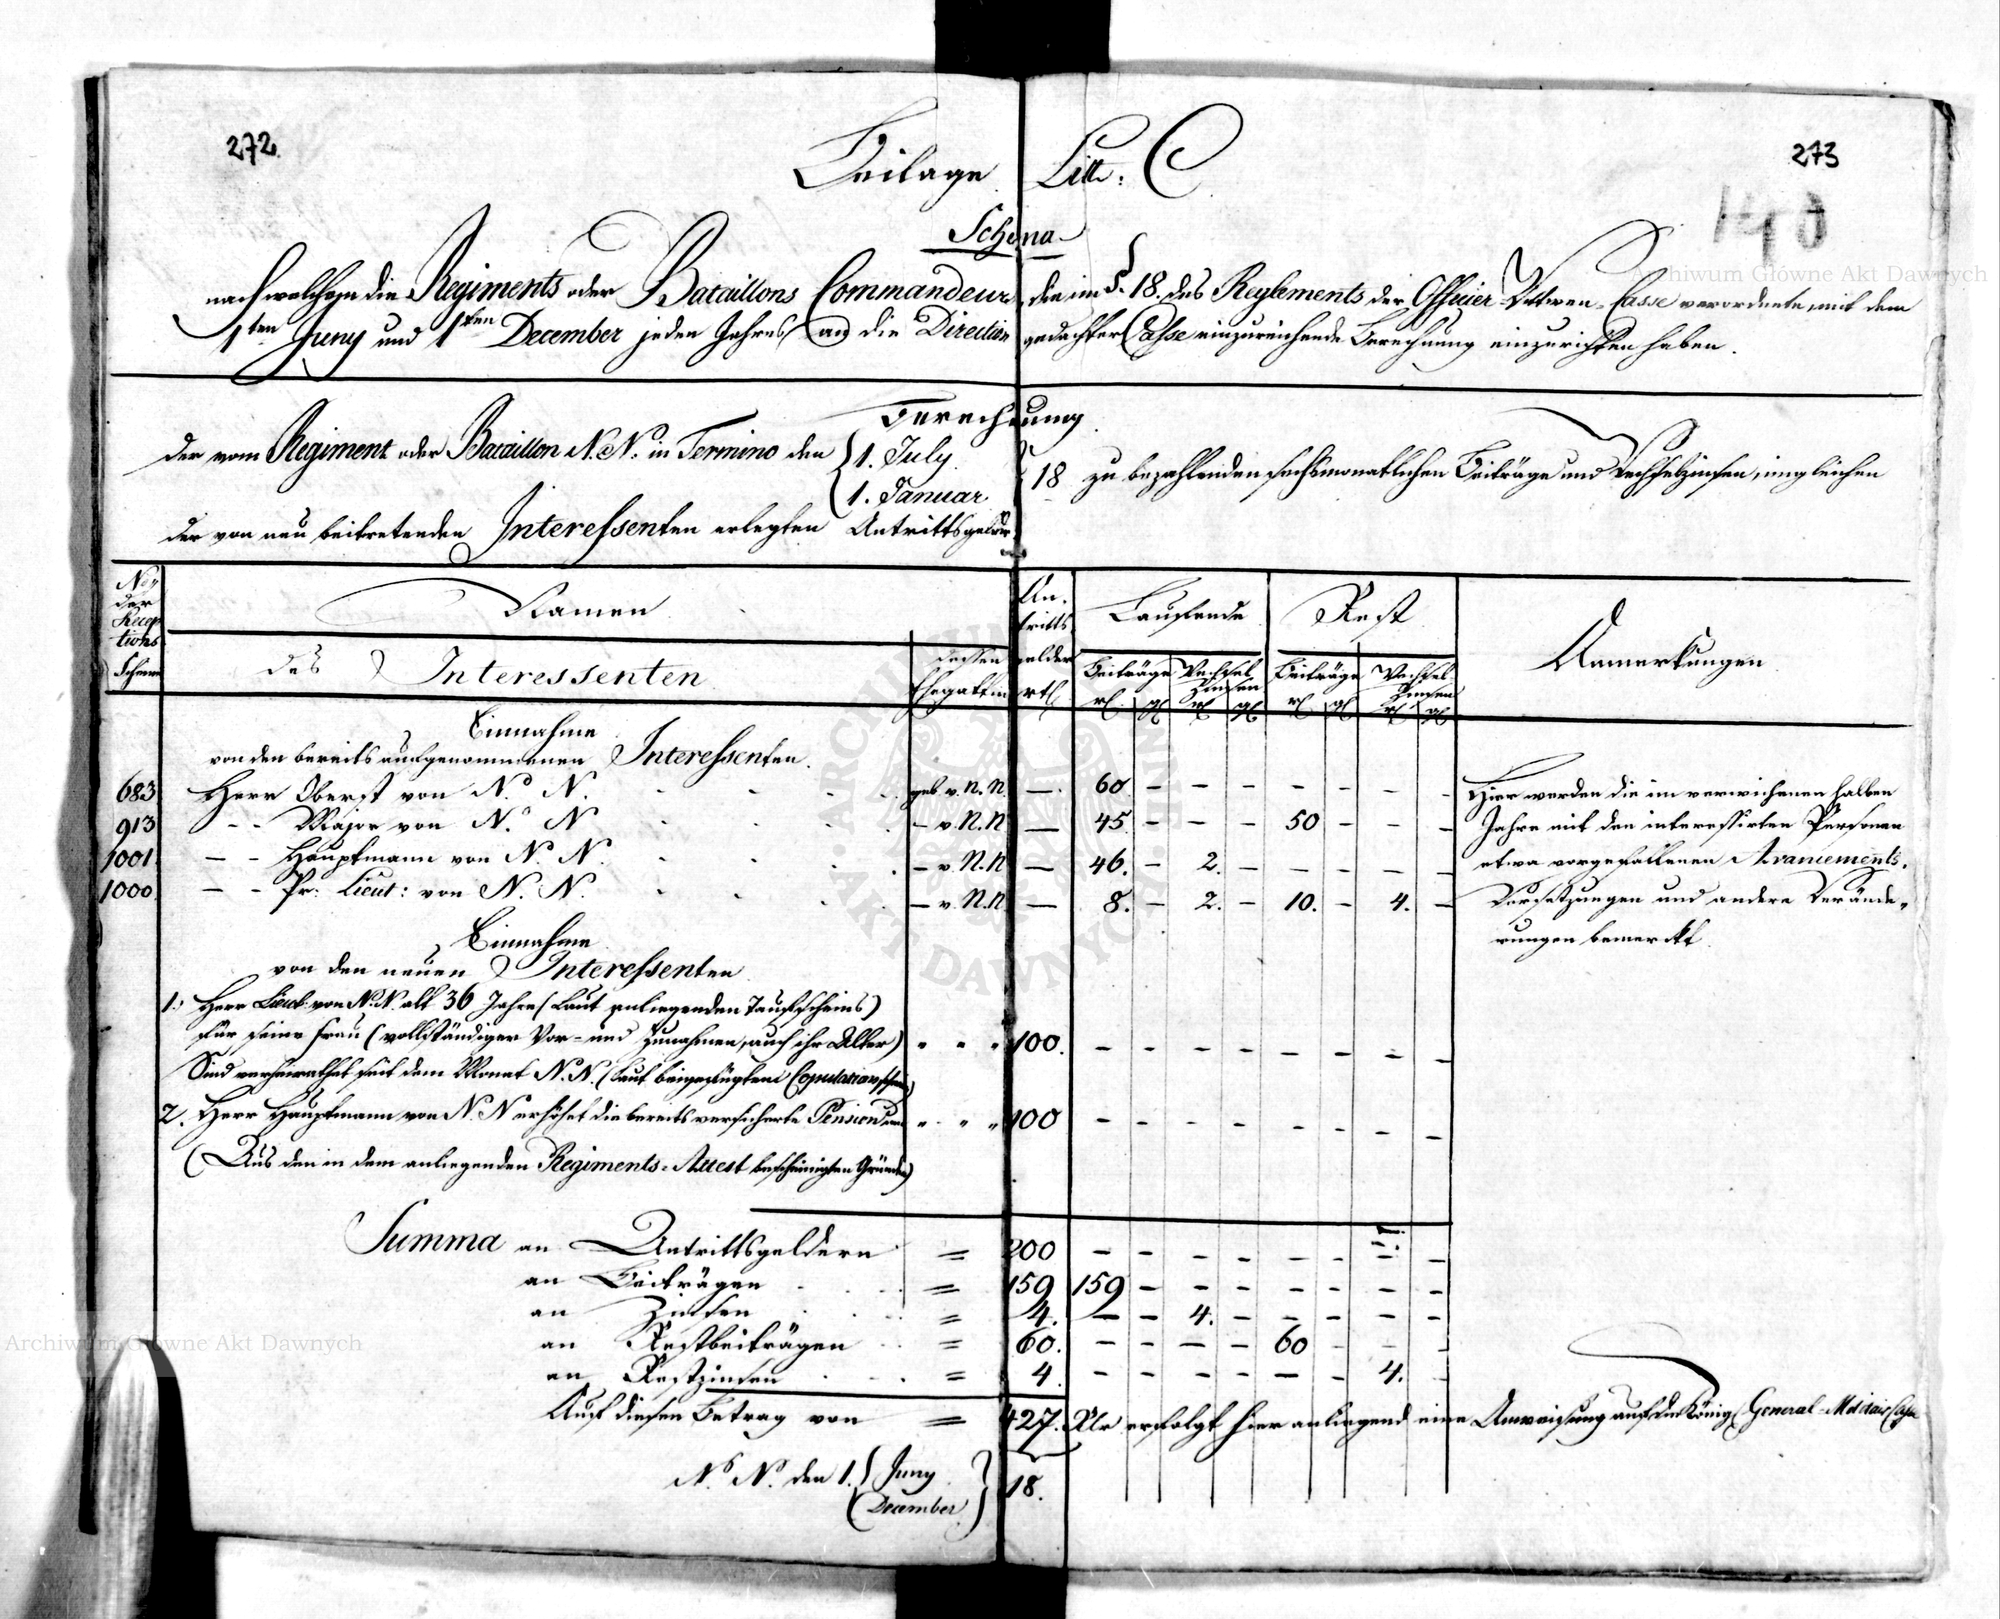 272.
273
Beilage Litt: C
Schema
nach welchem die Regiments oder Bataillons Commandeurs die im §. 18. des Reglements der Officier Wittwen-Casse verordnete, mit dem
1ten Juny und 1ten December jeden Jahres an die Direction gedachter Casse einzureichende Berechnung einzurichten haben.
Berechnung
der vom Regiment oder Bataillon N. N. in Termino den { 1. July 1. Januar } 18 zu bezahlenden sechsmonatlichen Beiträge und Wechselzinsen, imgleichen
der von neu beitretenden Interessenten erlegten Antrittsgelder
No der Receptions Scheine
Namen
des Interessenten
dessen Ehegattin
Antrittsgelder rtl
Laufende
Rest
Beiträge
Wechsel Zinsen
Beiträge
Wechsel Zinsen
Anmerkungen
Einnahme
von den bereits aufgenommenen Interessenten.
683 Herr Oberst von N. N. geb. v. N. N. — 60. – – – – – – –
913 – – Major von N. N. – v. N. N — 45. – – – 50 – – –
1001. – – Hauptmann von N. N. – v. N. N — 46. – 2. – – – – –
1000. – – Pr: Lieut: von N. N. – v. N. N. — 8. – 2. – 10. – 4. –
Hier werden die im verwichenen halben
Jahre mit den interessirten Personen
etwa vorgefallenen Avancements,
Versetzungen und andere Verände-
rungen bemerkt.
Einnahme
von den neuen Interessenten
1. Herr Lieut: von N. N. alt 36 Jahre (Laut anliegenden Taufscheins)
für seine Frau (vollständiger Vor- und Zunahmen, auch ihr Alter) " " " 100. – – – – – – – –
Sind verheirathet seit dem Monat N. N. (laut beigefügtem Copulationsschein)
2. Herr Hauptmann von N. N erhöhet die bereits versicherte Pension um " " " 100 – – – – – – – –
(Aus den in dem anliegenden Regiments-Attest bescheinigten Gründen)
Summa an Antrittsgeldern = 200 – – – – – – – –
an Beiträgen = 159 159 – – – – – – –
an Zinsen = 4. – – 4. – – – – –
an Restbeiträgen = 60. – – – – 60 – – –
an Restzinsen = 4. – – – – – – 4. –
Auf diesen Betrag von = 427. Rtlr erfolgt hier anliegend eine Anweisung auf die Königl. General-Militair Casse
N. N. den 1. { Juny December } 18.
Archiwum Główne Akt Dawnych
Archiwum Główne Akt Dawnych
ARCHIWUM GŁÓWNE AKT DAWNYCH